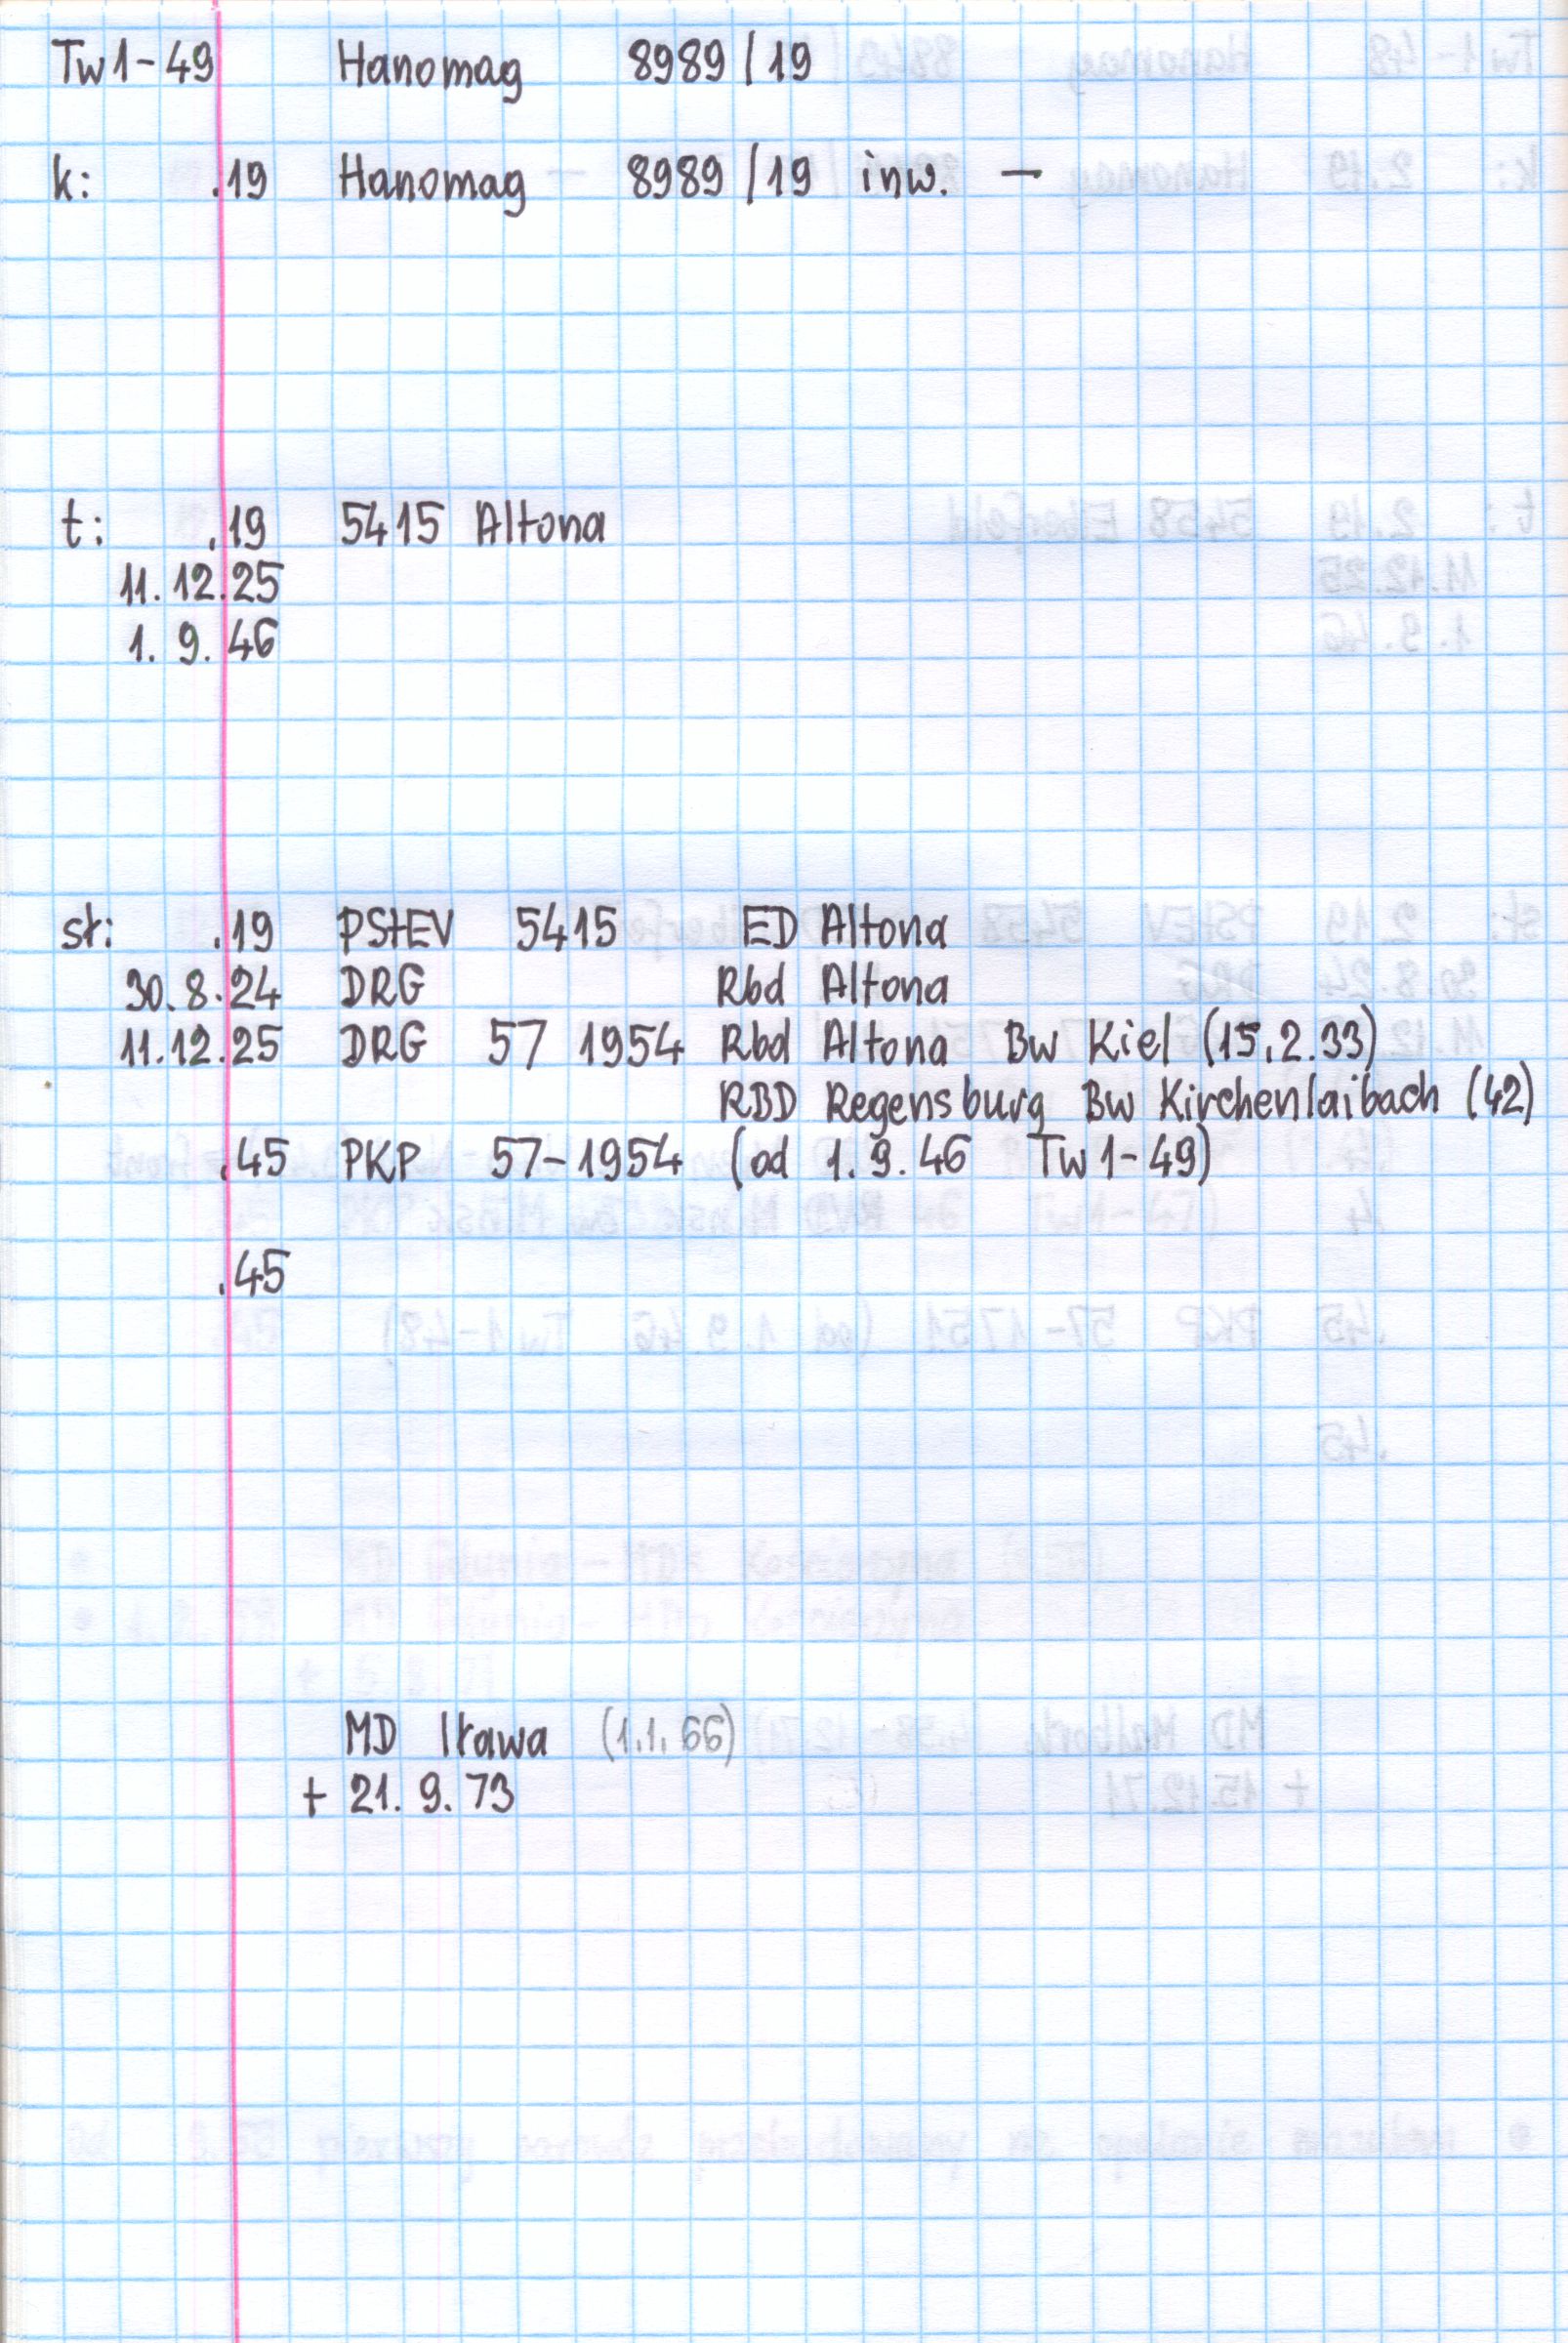 Tw1-49 Hanomag 8989/19
k: .19 Hanomag 8989/19 inw. —
t: .19 5415 Altona
11.12.25
1. 9. 46
sł: .19 PStEV 5415 ED Altona
30.8.24 DRG Rbd Altona
11.12.25 DRG 57 1954 Rbd Altona Bw Kiel (15.2.33)
RBD Regensburg Bw Kirchenlaibach (42)
.45 PKP 57-1954 (od 1.9.46 Tw1-49)
.45
MD Iława (1.1.66)
+ 21. 9. 73